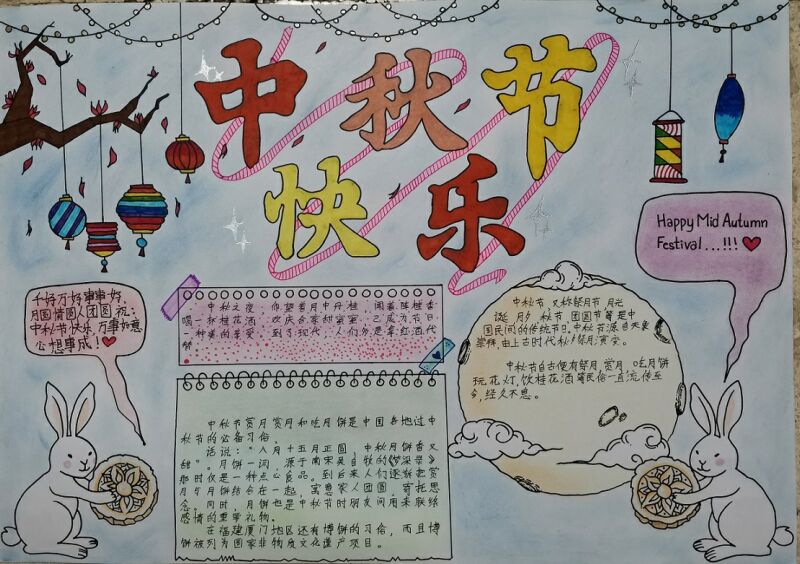 中秋节
快乐
Happy Mid Autumn
Festival...!!! ❤
千好万好事事好，
月圆情圆人团圆 祝：
中秋节快乐，万事如意
心想事成！❤
中秋之夜 仰望着月中丹桂 闻着阵桂香
喝一杯桂花酒 欢庆合家甜蜜蜜 已成为节日
一种美的享受 到了现代，人们多是拿红酒代
替
中秋节，又称祭月节 月光
诞 月夕 秋节 团圆节等是中
国民间的传统节日。中秋节源自天象
崇拜，由上古时代秋夕祭月演变。
中秋节自古便有祭月，赏月，吃月饼
玩花灯，饮桂花酒等民俗一直流传至
今，经久不息。
中秋节赏月赏月和吃月饼是中国各地过中
秋节的必备习俗。
话说：“八月十五月正圆，中秋月饼香又
甜”。月饼一词，源于南宋吴自牧的《梦梁录》
那时仅是一种点心食品。到后来人们逐渐把赏
月与月饼结合在一起，寓意家人团圆，寄托思
念。同时，月饼也是中秋节时朋友间用来联络
感情的重要礼物。
在福建厦门地区还有博饼的习俗，而且博
饼被列为国家非物质文化遗产项目。